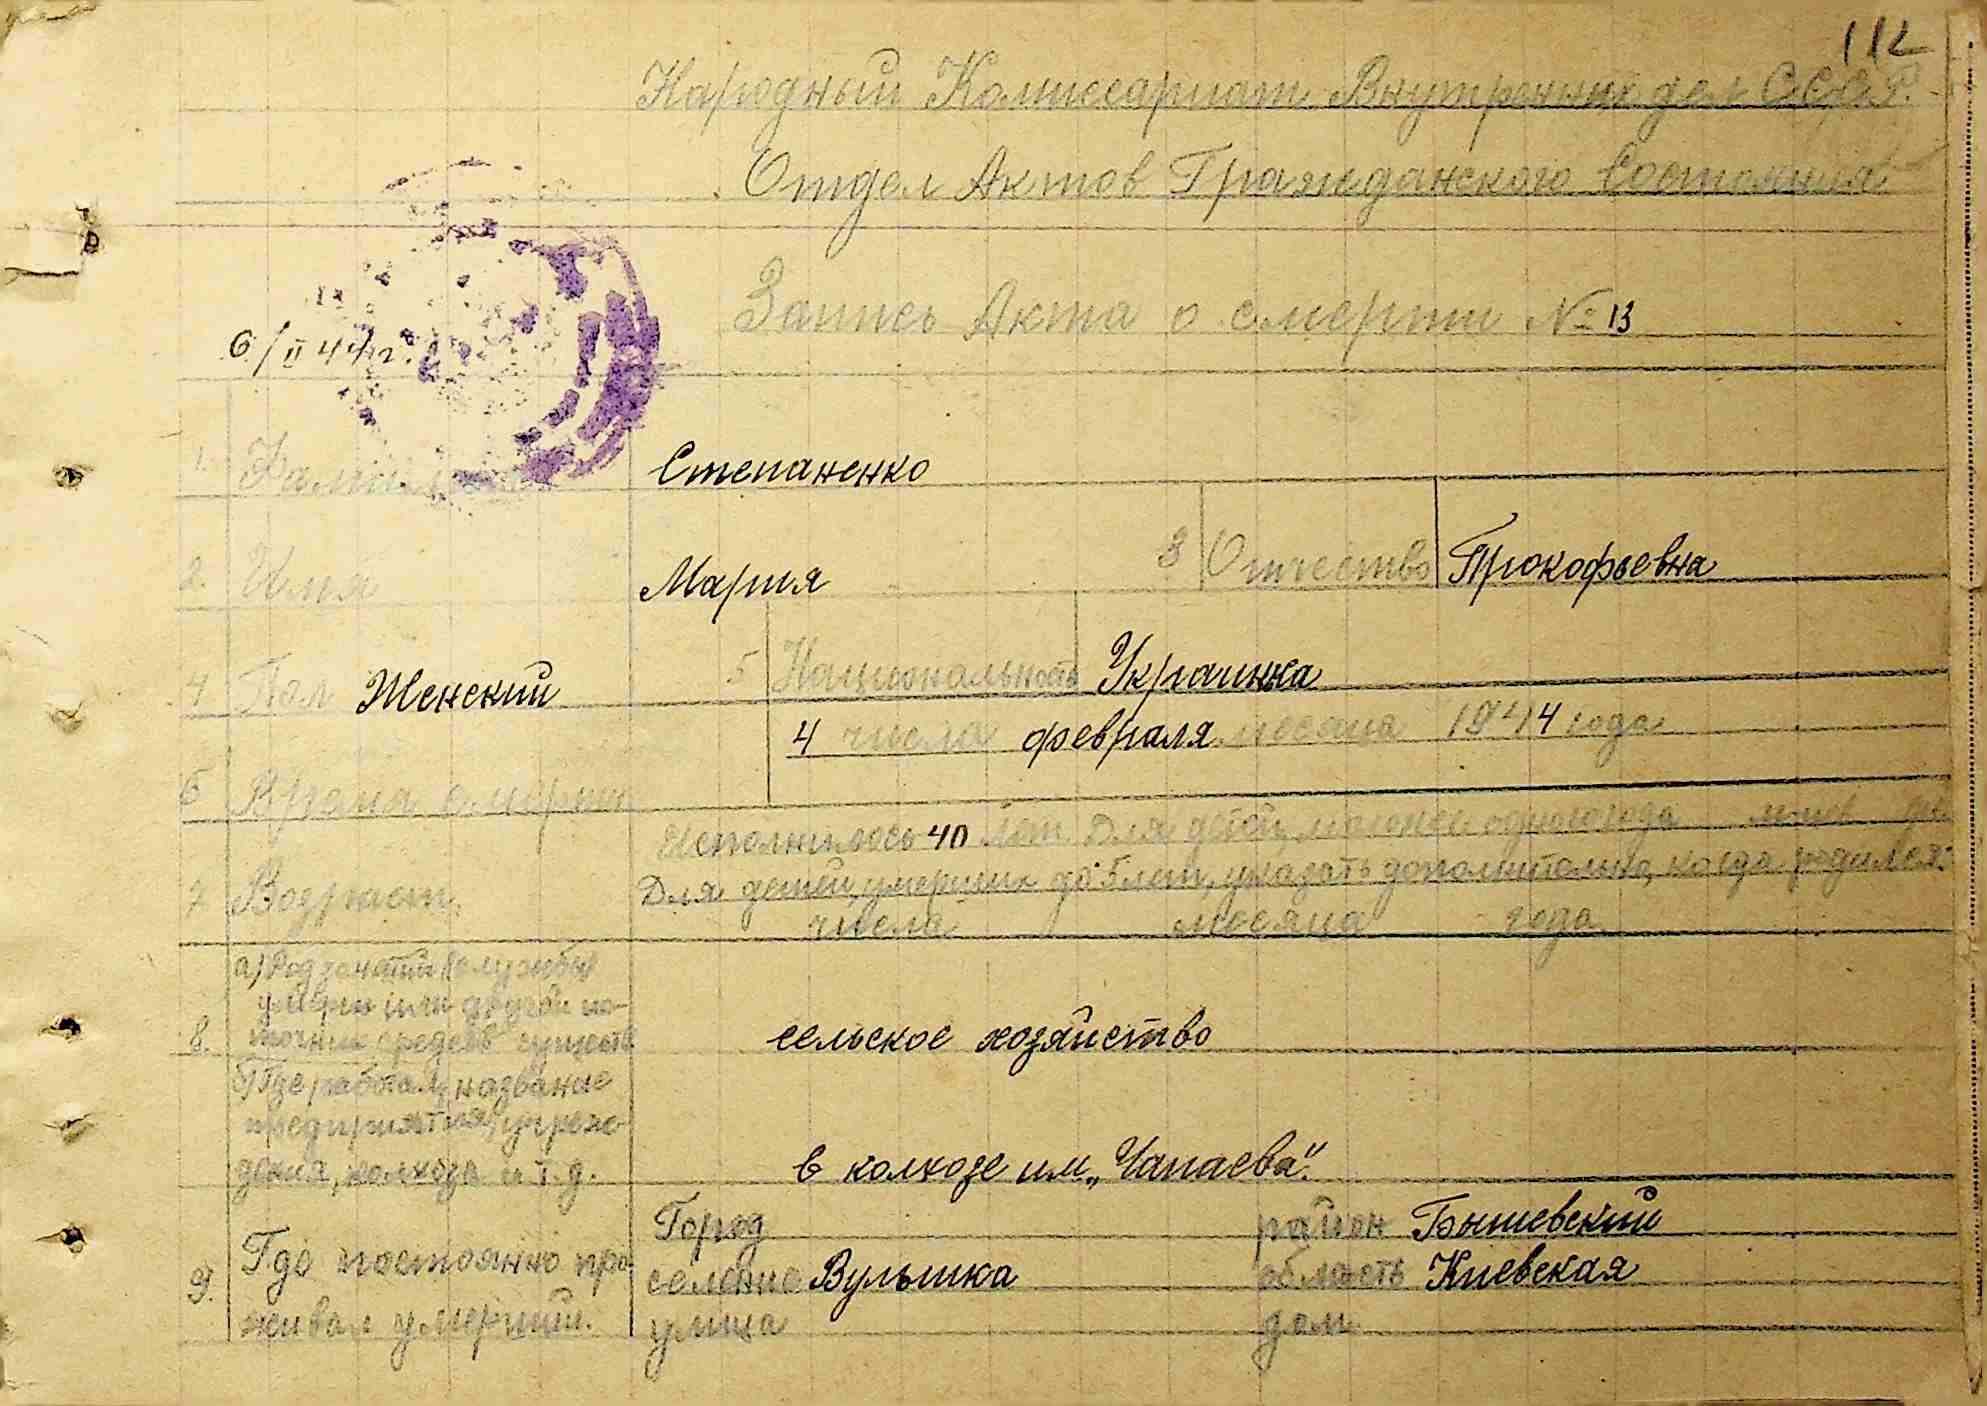 112
Народный Комиссариат Внутренних дел С.С.С.Р.
Отдел Актов Гражданского Состояния
Запись Акта о смерти № 13
6/II 44 г.
1. Фамилия Степаненко
2. Имя Мария 3 Отчество Прокофьевна
4 Пол Женский 5 Национальность Украинка
4 числа февраля месяца 1944 года
6 Время смерти
Исполнилось 40 лет. Для детей, моложе одного года месяц дн.
7 Возраст. Для детей, умерших до 5 лет, указать дополнительно, когда родился:
числа месяца года
а) Род занятий (службы)
умерш или другой ис-
8. точник средств существ сельское хозяйство
б) Где работал, название
предприятия, учреж-
дения, колхоза и т.д. в колхозе им. „Чапаева".
Город район Бышевский
9. Где постоянно про- селение Вулышка область Киевская
живал умерший. улица дом